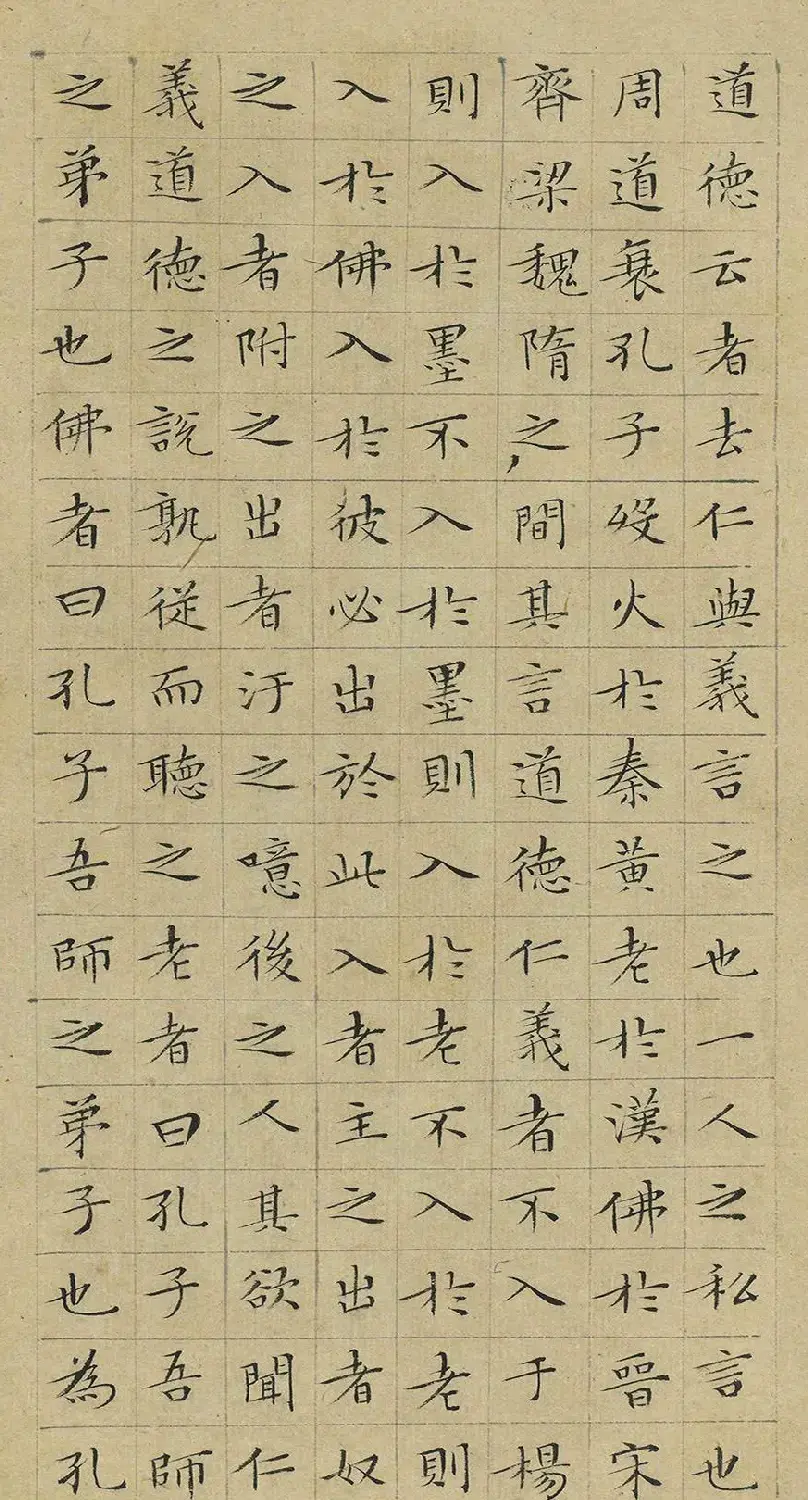 道德云者去仁與義言之也一人之私言也
周道衰孔子歿火於秦黃老於漢佛於晉宋
齊梁魏隋之間其言道德仁義者不入于楊
則入於墨不入於墨則入於老不入於老則
入於佛入於彼必出於此入者主之出者奴
之入者附之出者汙之噫後之人其欲聞仁
義道德之說孰從而聽之老者曰孔子吾師
之弟子也佛者曰孔子吾師之弟子也為孔